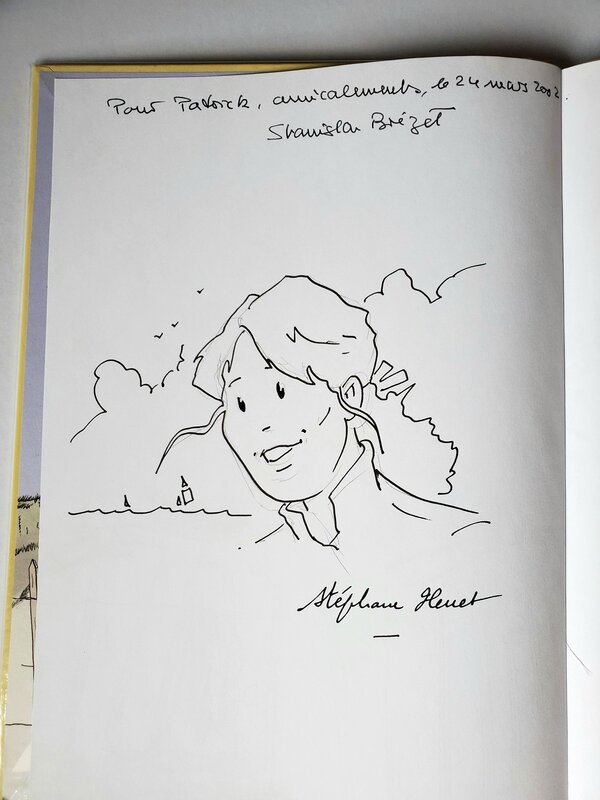 Pour Patrick, amicalement, le 24 mars 2002
Stanislas Brézet
Stéphane Heuet